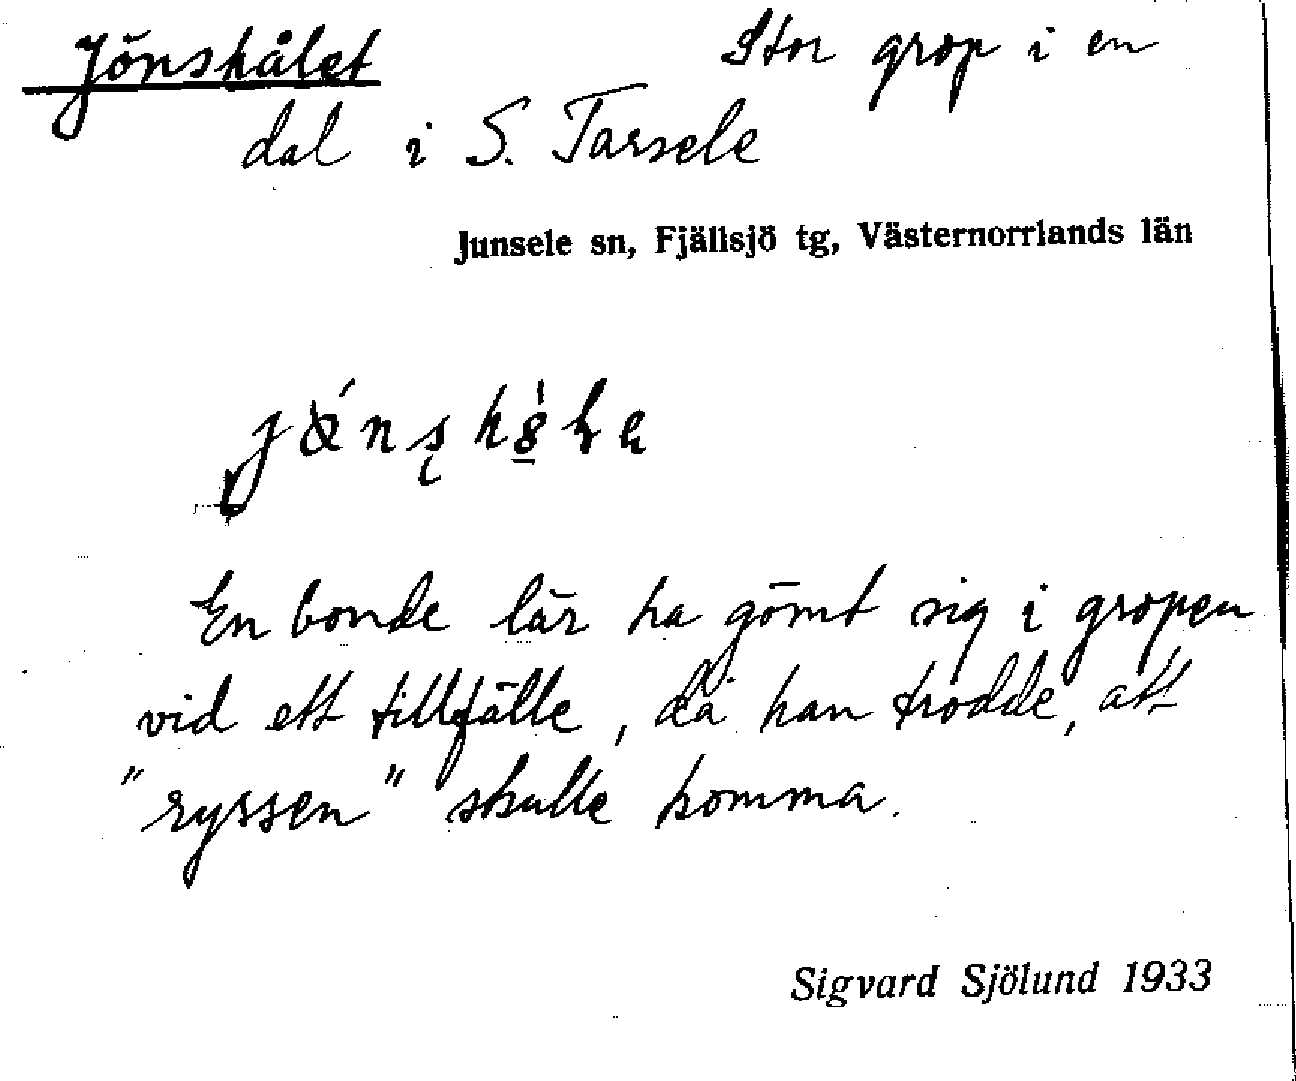 Jönshålet Stor grop i en
dal i S. Tarsele
Junsele sn, Fjällsjö tg, Västernorrlands län
En bonde lär ha gömt sig i gropen
vid ett tillfälle, då han trodde, att
"ryssen" skulle komma.
Sigvard Sjölund 1933